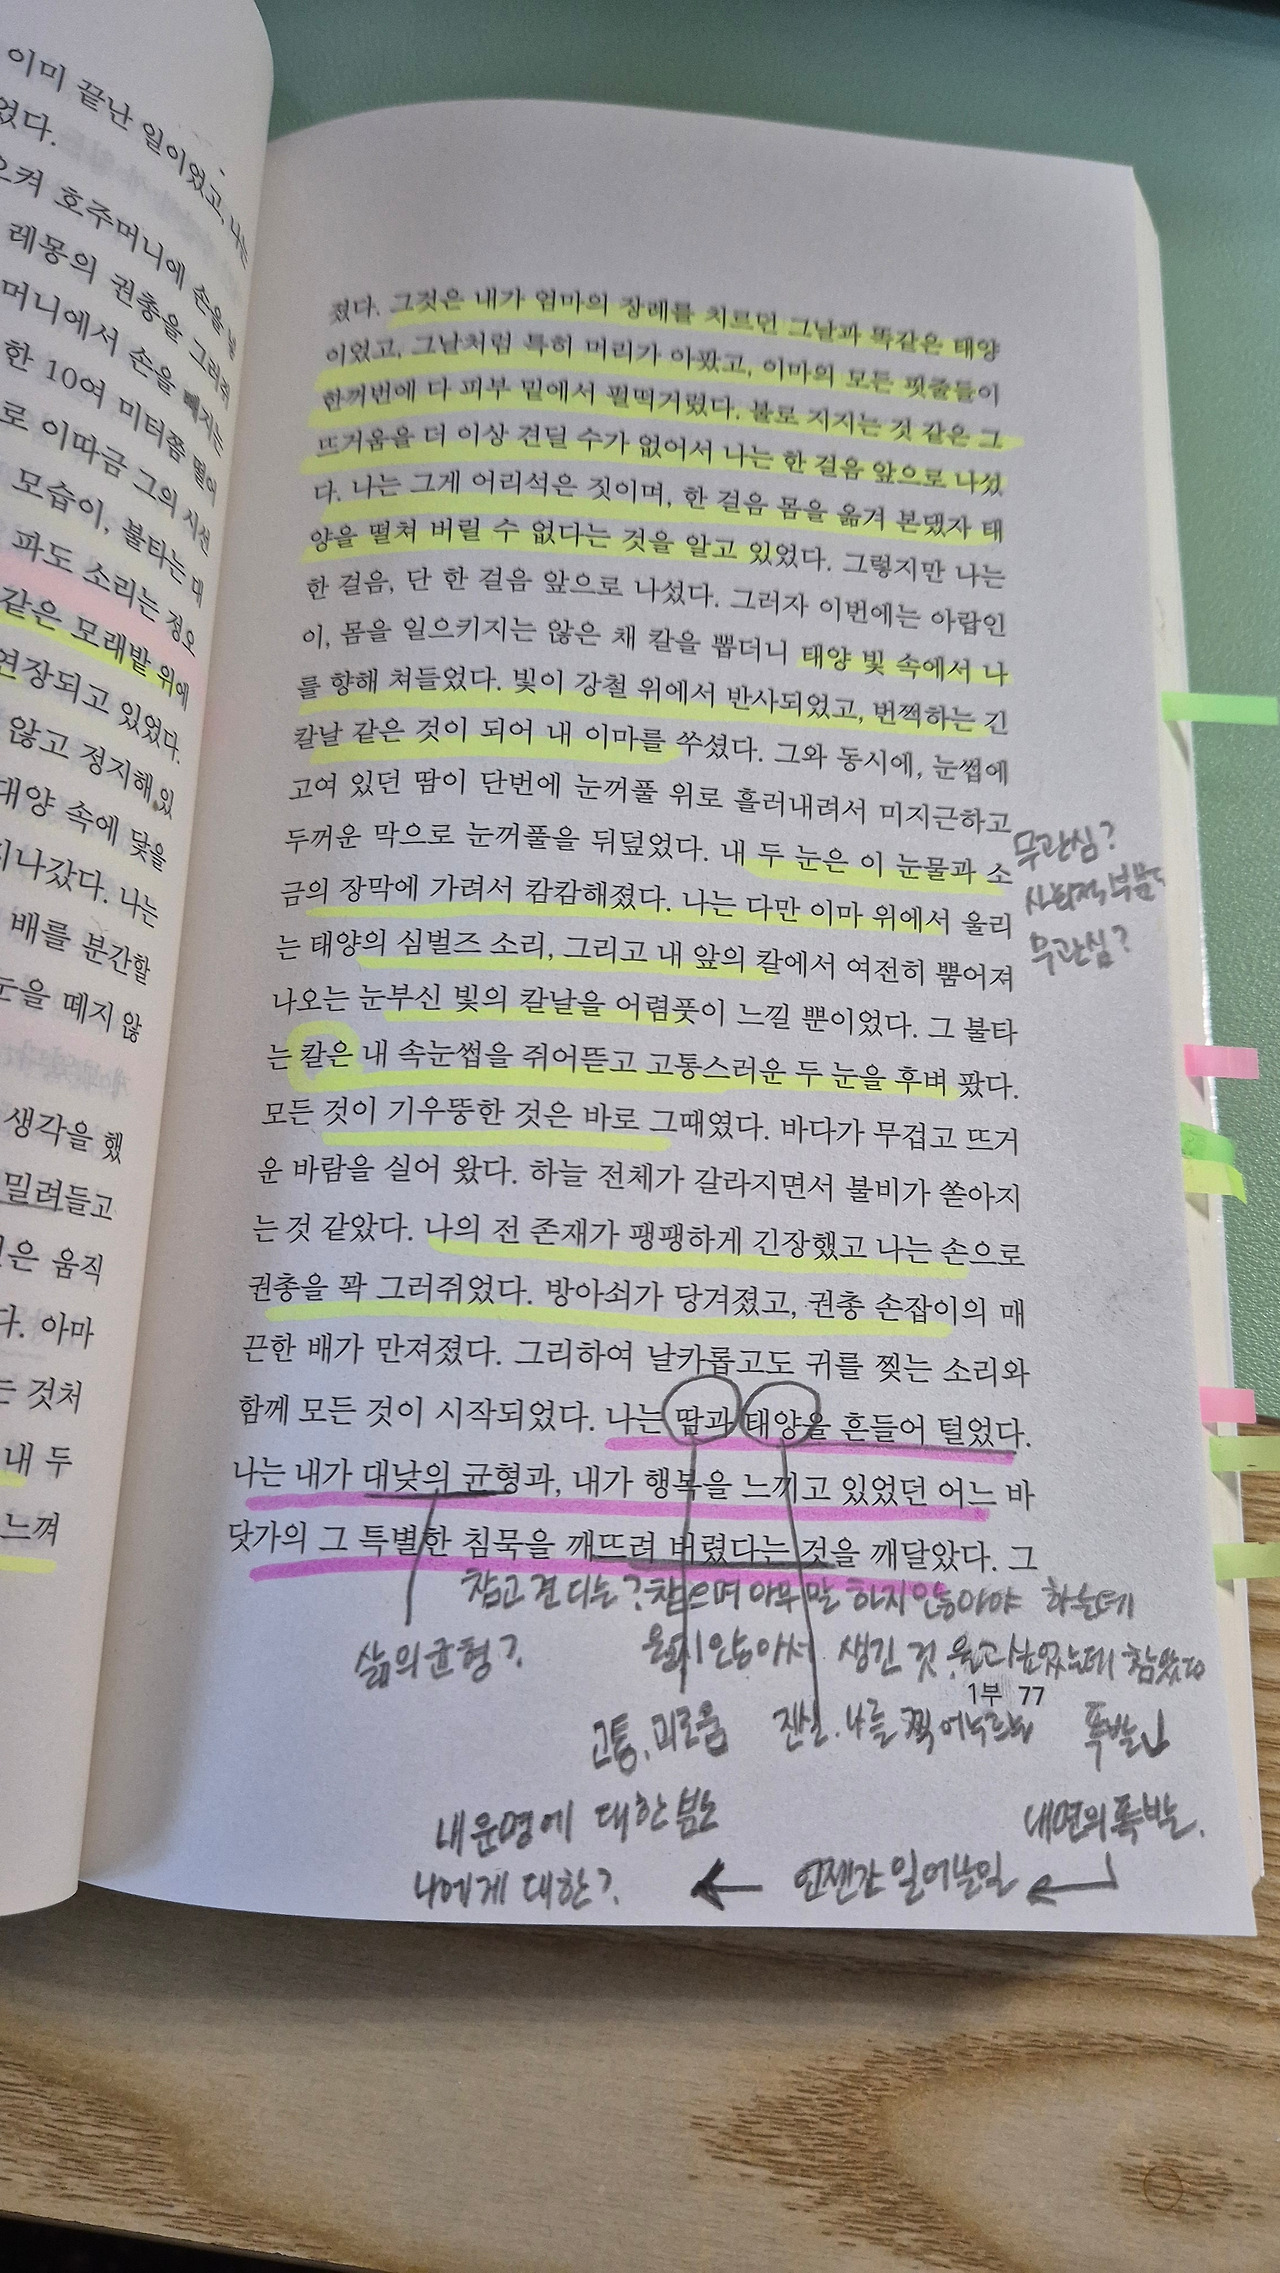 이미 끝난 일이었고, 나는
었다.
으켜 호주머니에 손을 넣
레몽의 권총을 그러쥐
머니에서 손을 빼지는
한 10여 미터쯤 떨어
로 이따금 그의 시선
모습이, 불타는 대
파도 소리는 정오
같은 모래밭 위에
연장되고 있었다.
않고 정지해 있
대양 속에 닻을
지나갔다. 나는
배를 분간할
눈을 떼지 않
생각을 했
밀려들고
은 움직
다. 아마
는 것처
내 두
느껴
졌다. 그것은 내가 엄마의 장례를 치르던 그날과 똑같은 태양
이었고, 그날처럼 특히 머리가 아팠고, 이마의 모든 핏줄들이
한꺼번에 다 피부 밑에서 펄떡거렸다. 불로 지지는 것 같은 그
뜨거움을 더 이상 견딜 수가 없어서 나는 한 걸음 앞으로 나섰
다. 나는 그게 어리석은 짓이며, 한 걸음 몸을 옮겨 본댔자 태
양을 떨쳐 버릴 수 없다는 것을 알고 있었다. 그렇지만 나는
한 걸음, 단 한 걸음 앞으로 나섰다. 그러자 이번에는 아랍인
이, 몸을 일으키지는 않은 채 칼을 뽑더니 태양 빛 속에서 나
를 향해 쳐들었다. 빛이 강철 위에서 반사되었고, 번쩍하는 긴
칼날 같은 것이 되어 내 이마를 쑤셨다. 그와 동시에, 눈썹에
고여 있던 땀이 단번에 눈꺼풀 위로 흘러내려서 미지근하고
두꺼운 막으로 눈꺼풀을 뒤덮었다. 내 두 눈은 이 눈물과 소
금의 장막에 가려서 캄캄해졌다. 나는 다만 이마 위에서 울리
는 태양의 심벌즈 소리, 그리고 내 앞의 칼에서 여전히 뿜어져
나오는 눈부신 빛의 칼날을 어렴풋이 느낄 뿐이었다. 그 불타
는 칼은 내 속눈썹을 쥐어뜯고 고통스러운 두 눈을 후벼 팠다.
모든 것이 기우뚱한 것은 바로 그때였다. 바다가 무겁고 뜨거
운 바람을 실어 왔다. 하늘 전체가 갈라지면서 불비가 쏟아지
는 것 같았다. 나의 전 존재가 팽팽하게 긴장했고 나는 손으로
권총을 꽉 그러쥐었다. 방아쇠가 당겨졌고, 권총 손잡이의 매
끈한 배가 만져졌다. 그리하여 날카롭고도 귀를 찢는 소리와
함께 모든 것이 시작되었다. 나는 땀과 태양을 흔들어 털었다.
나는 내가 대낮의 균형과, 내가 행복을 느끼고 있었던 어느 바
닷가의 그 특별한 침묵을 깨뜨려 버렸다는 것을 깨달았다. 그
무관심?
사회적 부분
무관심?
참고 견디는? 참으며 아무 말 하지 않아야 하는데
울지 않아서 생긴 것 울고 싶었는데 참았다
삶의 균형?
1부 77
고통, 괴로움
진실. 나를 찍어누르는
폭발
내 운명에 대한 분노
내면의 폭발.
나에게 대한?
언젠간 일어날 일